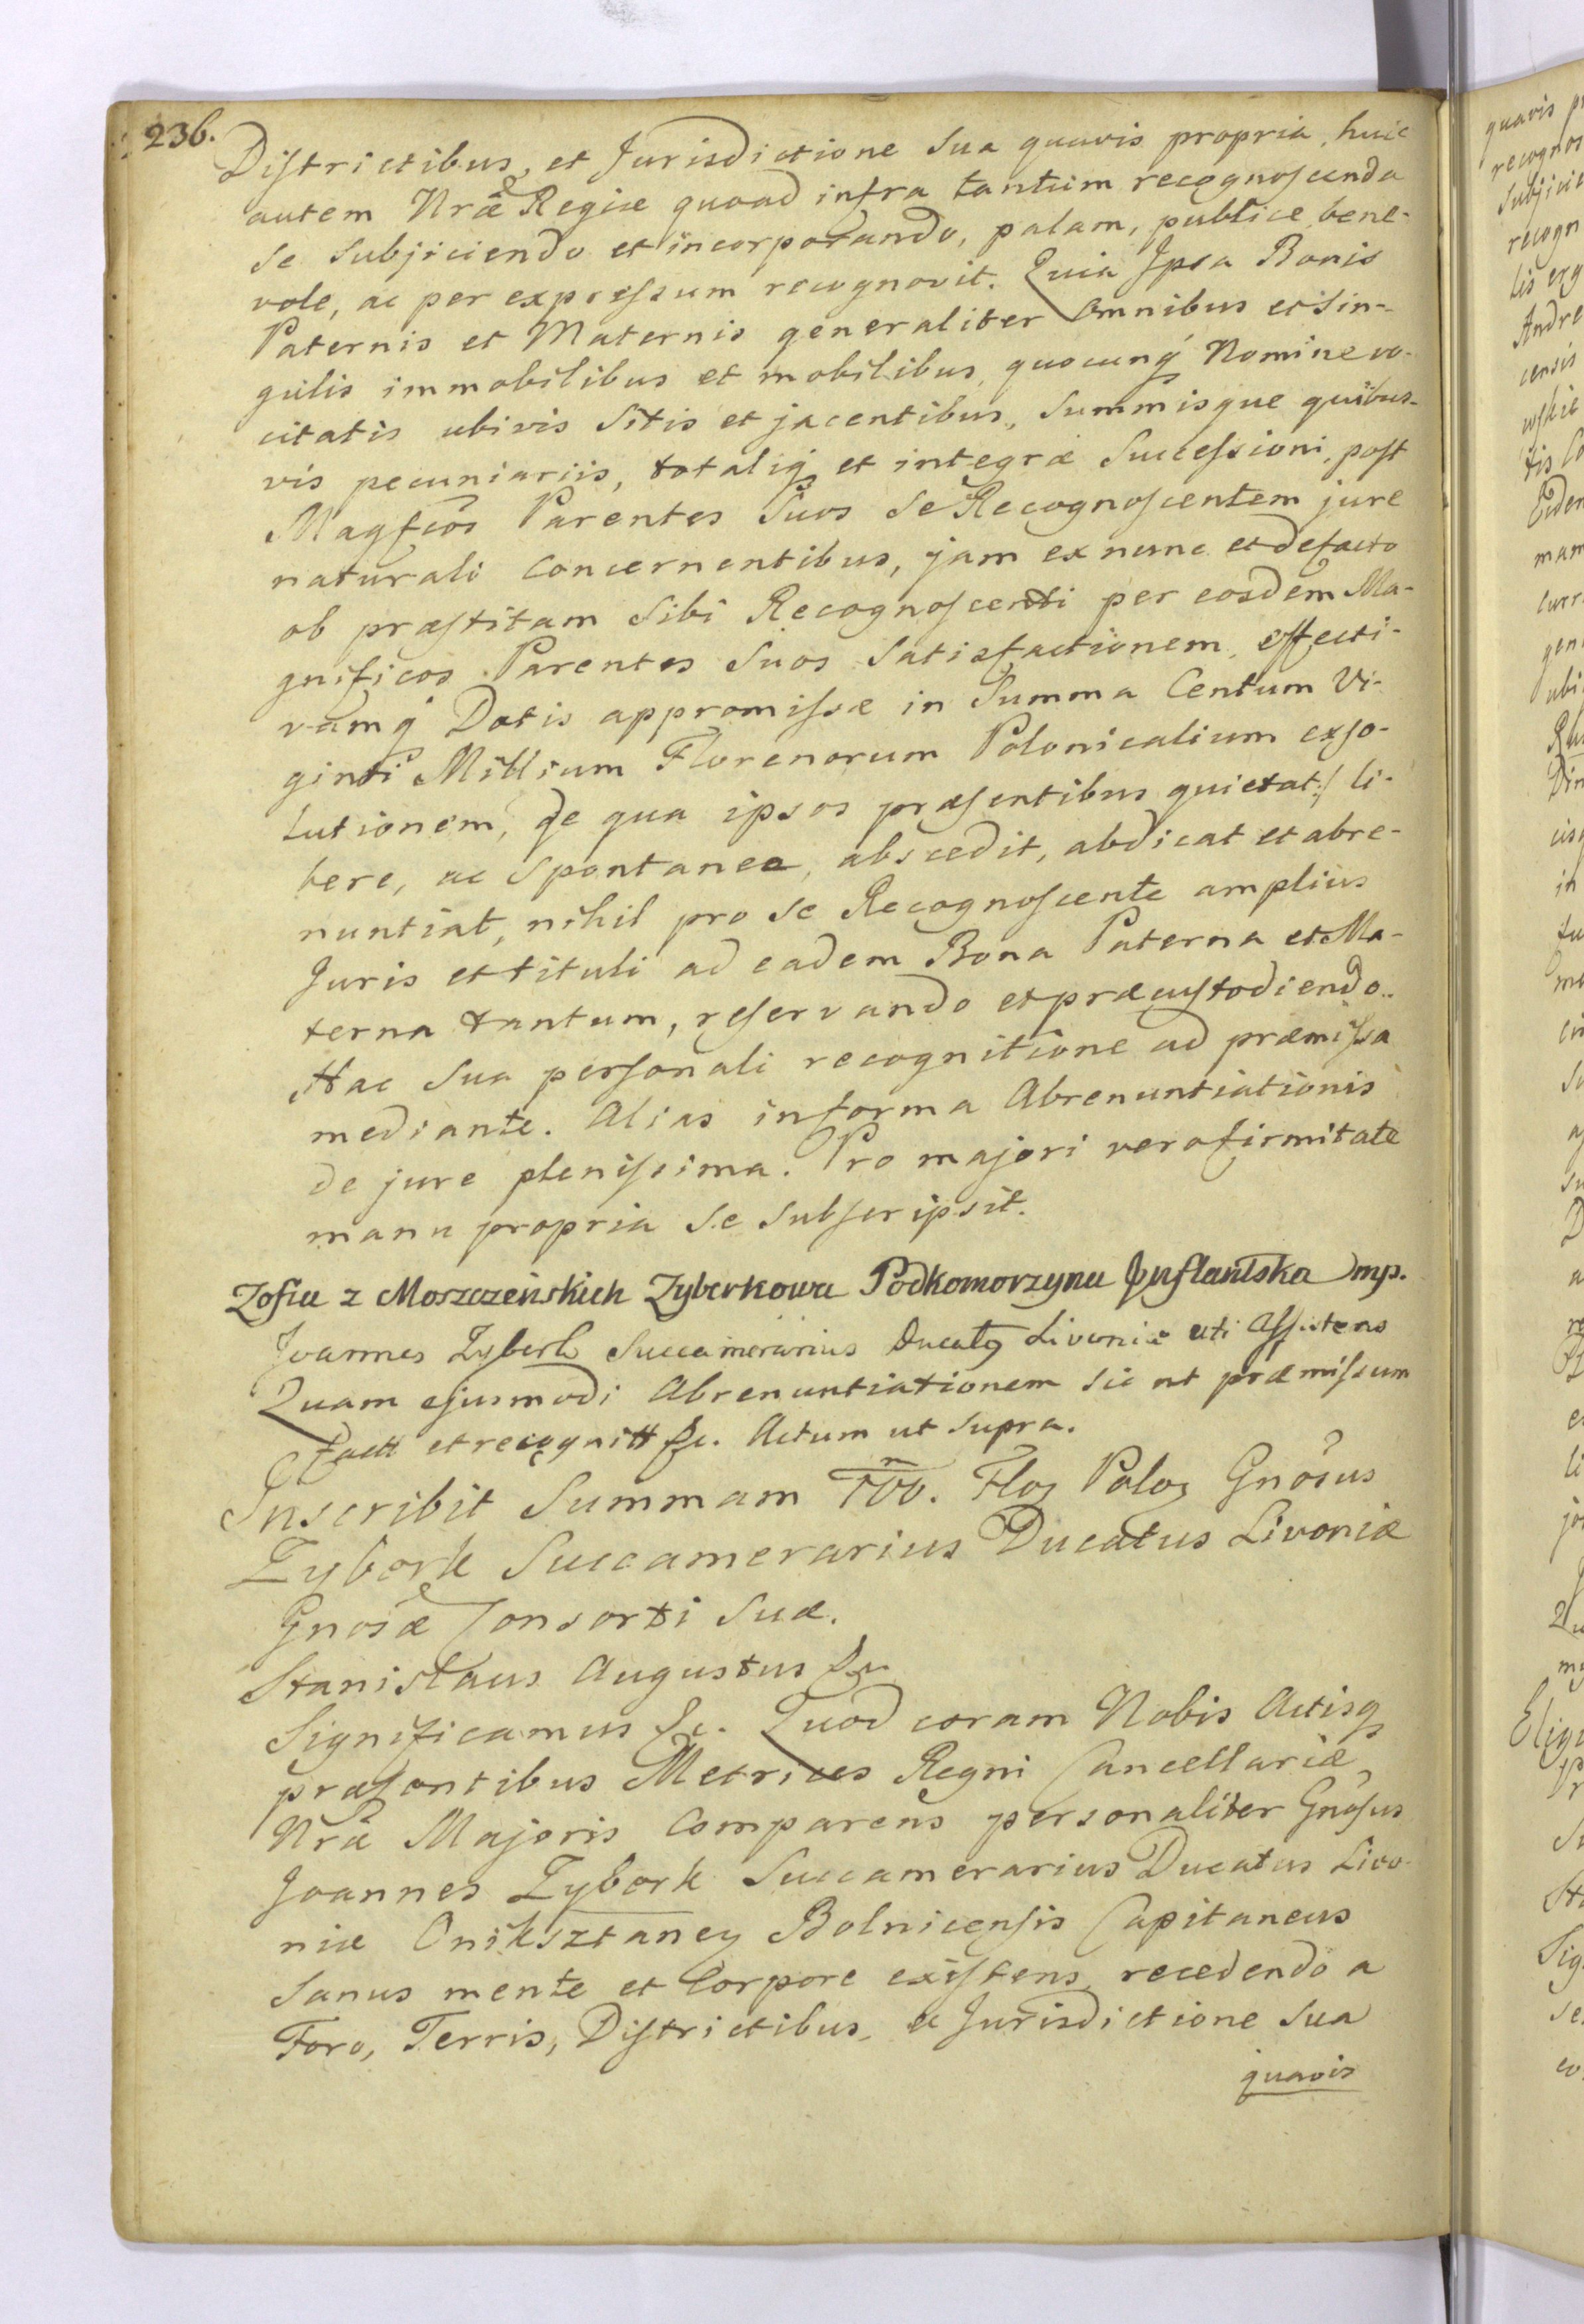 236.
Districtibus, et Jurisdictione Sua quavis propria, huic
autem Nrae Regiae quoad infra tantum recognoscenda
se subjiciendo et incorporando, palam, publice, bene-
vole, ac per expressum recognovit. Quia Ipsa Bonis
Paternis et Maternis generaliter omnibus et sin-
gulis immobilibus et mobilibus, quocunq Nomine vo-
citatis ubivis Sitis et jacentibus, Summisque quibus-
vis pecuniariis, totaliq et integrae Successioni, post
Magfcos Parentes Suos Se Recognoscentem jure
naturali Concernentibus, jam ex nunc et de facto
ob praestitam Sibi Recognoscenti per eosdem Ma-
gnificos Parentes Suos Satisfactionem, effecti-
vamq Dotis appromissae in Summa Centum Vi-
ginti Millium Florenorum Polonicalium exso-
lutionem, de qua ipsos praesentibus quietat:/ li-
bere, ac Spontanee, abscedit, abdicat et abre-
nuntiat, nihil pro Se Recognoscente amplius
Juris et tituli ad eadem Bona Paterna et Ma-
terna tantum, reservando et praecustodiendo..
Hac Sua personali recognitione ad praemissa
mediante. Alias in forma Abrenuntiationis
de jure plenissima. Pro majori vero firmitate
manu propria Se Subscripsit.
Zofia z Moszczeńskich Zyberkowa Podkomorzyna Inflantska mp.
Joannes Zyberk Succamerarius Ducatq Livoniae uti Assistens
Quam ejusmodi Abrenuntiationem sic ut praemissum
factt et recognitt &c. Actum ut Supra.
Inscribit Summam 100. Flor Polor Gnosus
Zyberk Succamerarius Ducatus Livoniae
Gnosae Consorti Suae.
Stanislaus Augustus &c
Significamus &c. Quod coram Nobis Actisq
praesentibus Metrices Regni Cancellariae
Nrae Majoris Comparens personaliter Gnosus
Joannes Zyberk Succamerarius Ducatus Livo-
niae Oniksztaney Bolnicensis Capitaneus
Sanus mente et Corpore existens, recedendo a
Foro, Terris, Districtibus, et Jurisdictione Sua
quavis